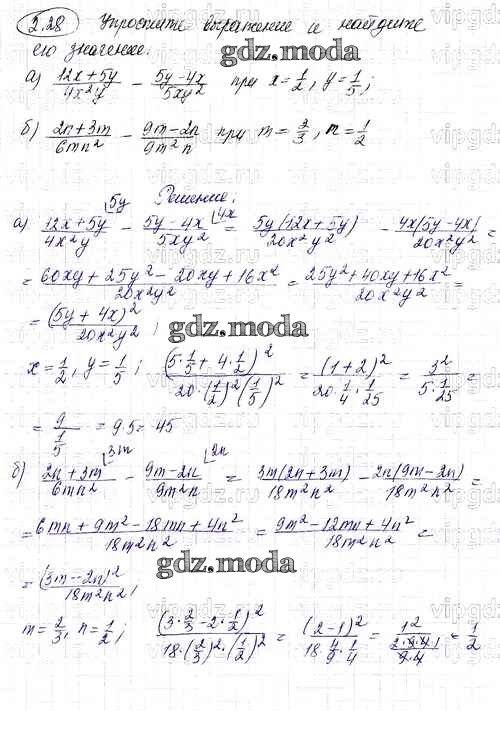 2.28 Упростите выражение и найдите
его значение.
gdz.moda
а) (12x+5y)/(4x²y) − (5y−4x)/(5xy²) при x=1/2, y=1/5;
б) (2n+3m)/(6mn²) − (9m−2n)/(9m²n) при m=2/3, n=1/2
Решение:
а) (12x+5y)/(4x²y) |5y − (5y−4x)/(5xy²) |4x = 5y(12x+5y)/(20x²y²) − 4x(5y−4x)/(20x²y²) =
= (60xy+25y²−20xy+16x²)/(20x²y²) = (25y²+40xy+16x²)/(20x²y²) =
= (5y+4x)²/(20x²y²);
gdz.moda
x=1/2, y=1/5; (5·1/5+4·1/2)²/(20·(1/2)²(1/5)²) = (1+2)²/(20·1/4·1/25) = 3²/(5·1/25) =
= 9/(1/5) = 9·5= 45
б) (2n+3m)/(6mn²) |3m − (9m−2n)/(9m²n) |2n = 3m(2n+3m)/(18m²n²) − 2n(9m−2n)/(18m²n²) =
= (6mn+9m²−18mn+4n²)/(18m²n²) = (9m²−12mn+4n²)/(18m²n²) =
gdz.moda
= (3m−2n)²/(18m²n²);
m=2/3, n=1/2; (3·2/3−2·1/2)²/(18·(2/3)²·(1/2)²) = (2−1)²/(18·4/9·1/4) = 1²/(2·9·4/(9·4)) = 1/2
gdz.moda